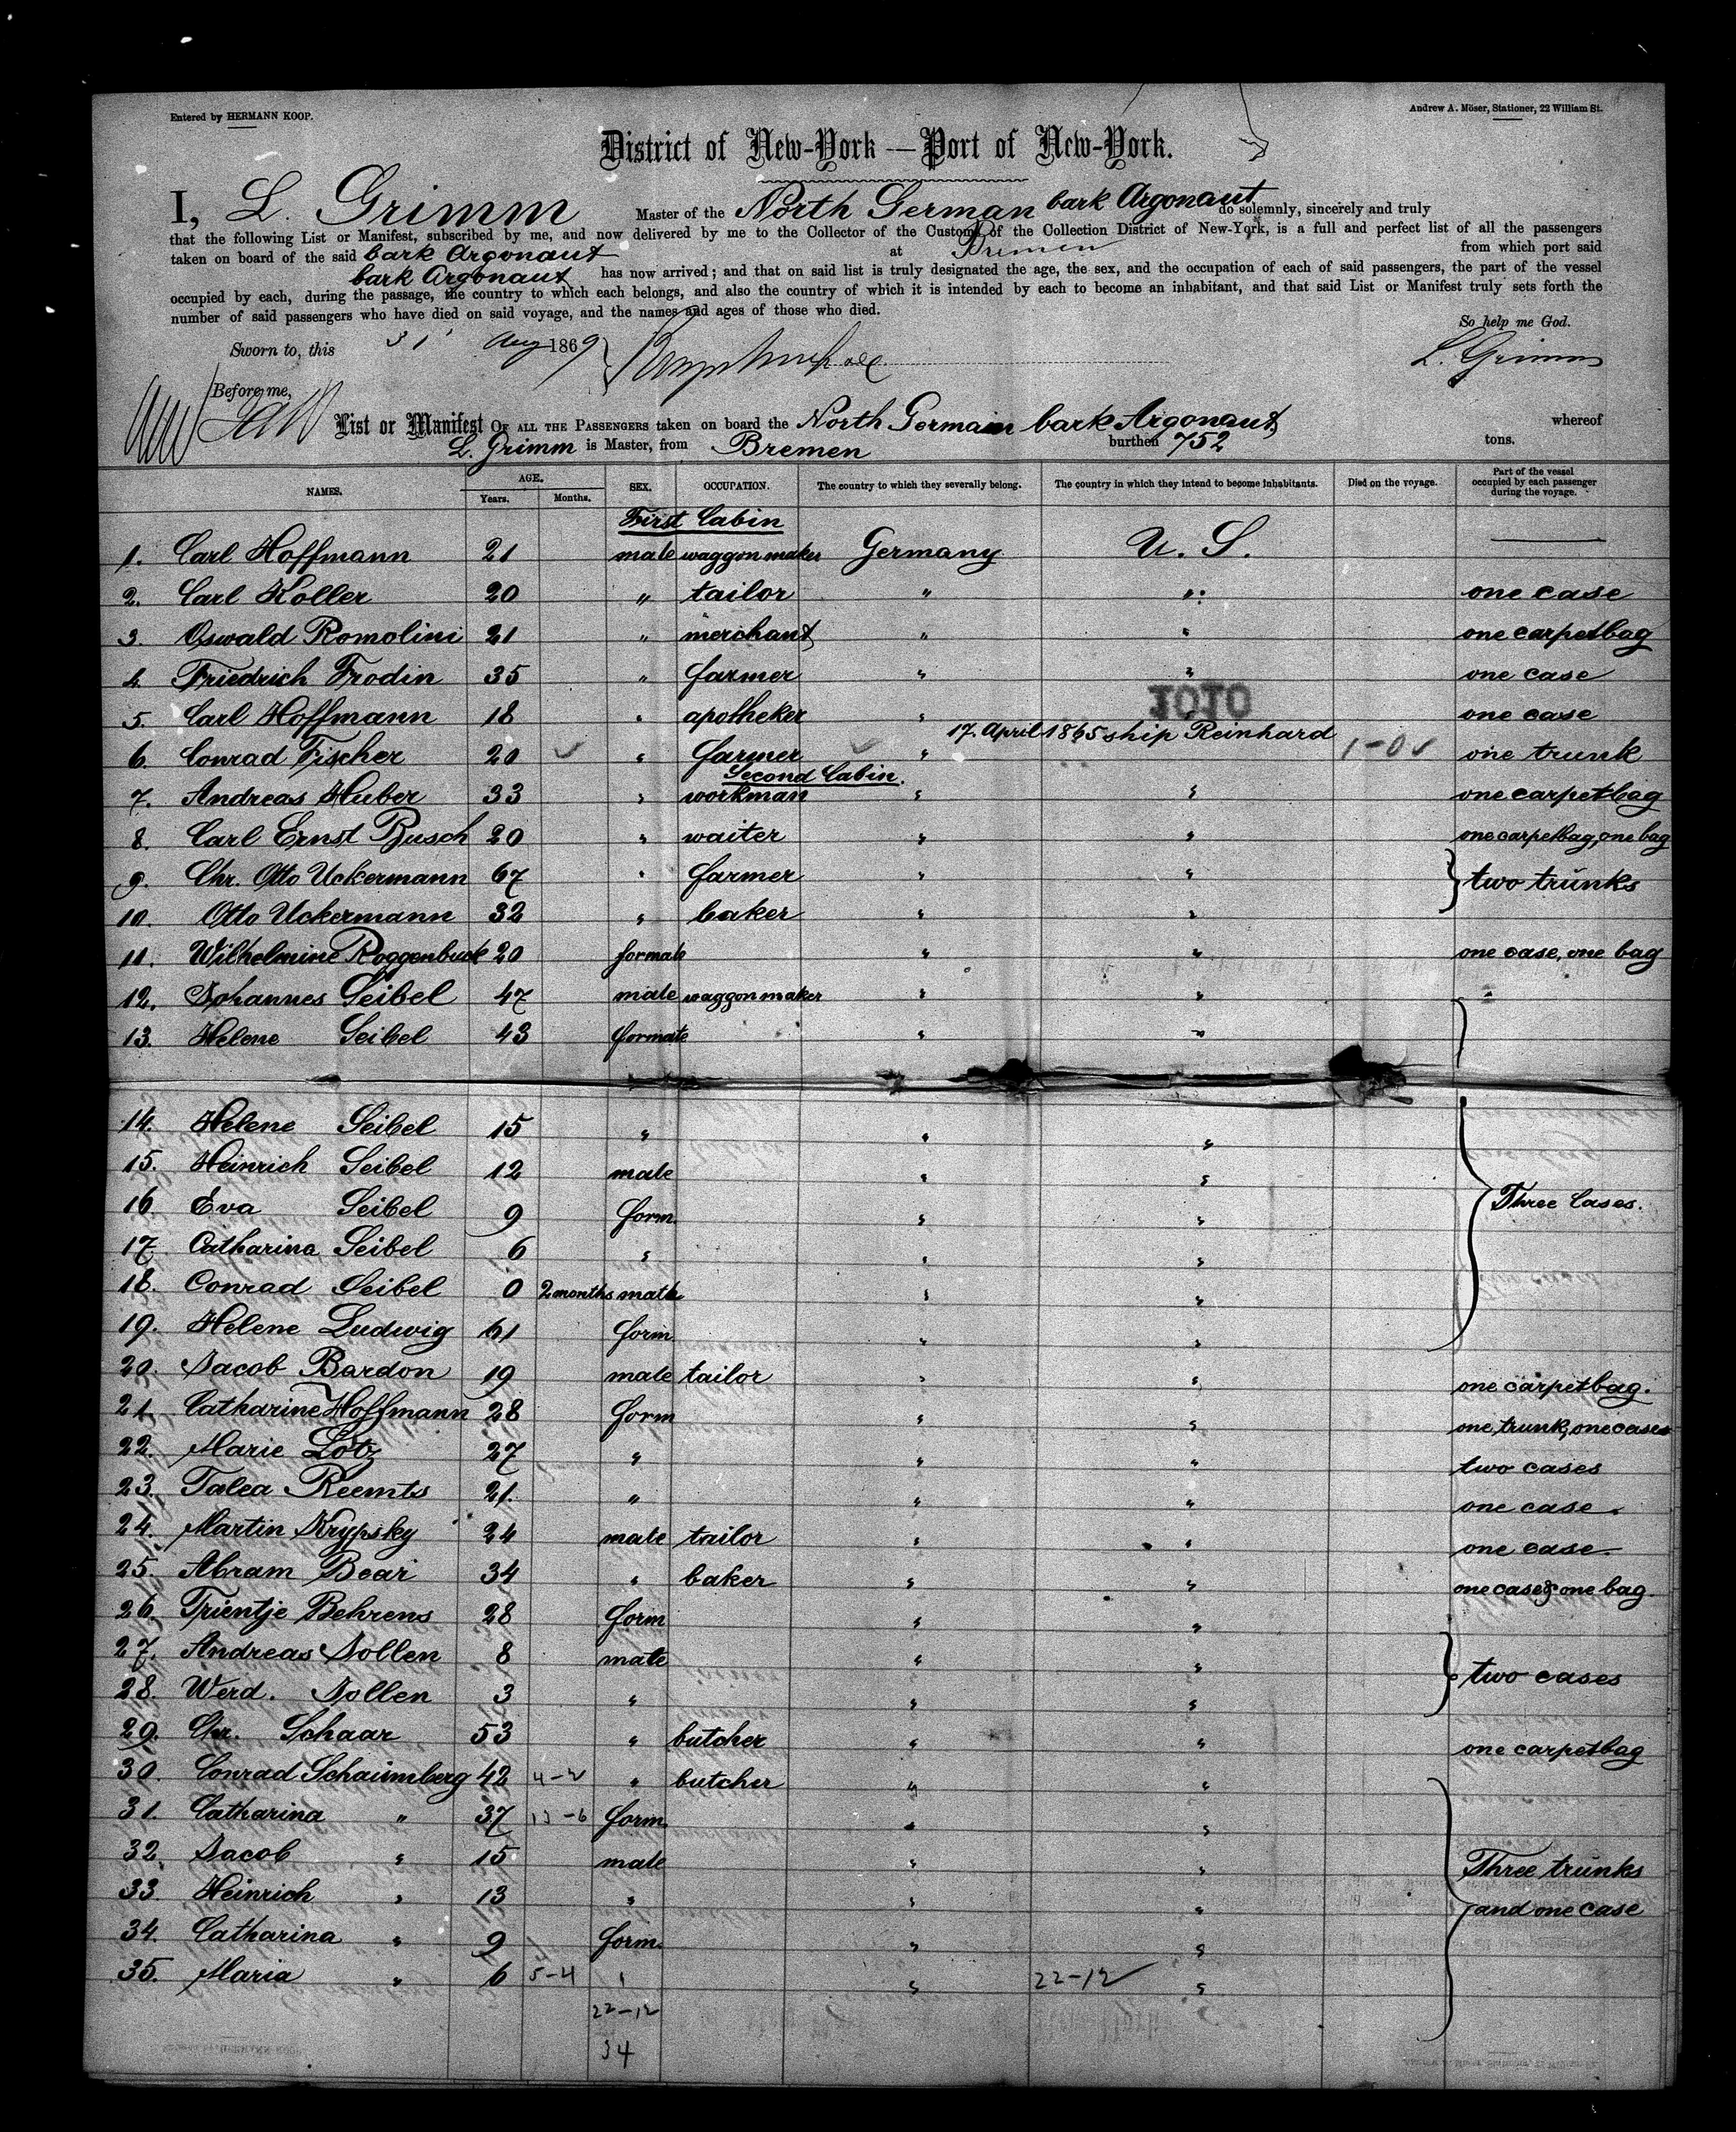 Entered by HERMANN KOOP.
Andrew A. Möser, Stationer, 22 William St.
District of New-York — Port of New-York.
I, L. Grimm Master of the North German bark Argonaut do solemnly, sincerely and truly
that the following List or Manifest, subscribed by me, and now delivered by me to the Collector of the Customs of the Collection District of New-York, is a full and perfect list of all the passengers
taken on board of the said bark Argonaut at Bremen from which port said
bark Argonaut has now arrived; and that on said list is truly designated the age, the sex, and the occupation of each of said passengers, the part of the vessel
occupied by each, during the passage, the country to which each belongs, and also the country of which it is intended by each to become an inhabitant, and that said List or Manifest truly sets forth the
number of said passengers who have died on said voyage, and the names and ages of those who died.
So help me God.
Sworn to, this 31 Aug 1869
L. Grimm
Before me,
List or Manifest OF ALL THE PASSENGERS taken on board the North German bark Argonaut whereof
L. Grimm is Master, from Bremen burthen 752 tons.
NAMES. AGE. Years. Months. SEX. OCCUPATION. The country to which they severally belong. The country in which they intend to become inhabitants. Died on the voyage. Part of the vessel occupied by each passenger during the voyage.
First Cabin
1. Carl Hoffmann 21 male waggon maker Germany U. S.
2. Carl Koller 20 " tailor " " one case
3. Oswald Romolini 21 " merchant " " one carpetbag
4. Friedrich Frodin 35 " farmer " " one case
1010
5. Carl Hoffmann 18 " apotheker " " one case
17. April 1865 ship Reinhard
6. Conrad Fischer 20 " farmer " 1-0 one trunk
Second Cabin.
7. Andreas Huber 33 " workman " " one carpetbag
8. Carl Ernst Busch 20 " waiter " " one carpetbag, one bag
9. Chr. Otto Uckermann 67 " farmer " " two trunks
10. Otto Uckermann 32 " baker " "
11. Wilhelmine Roggenbuck 20 formale " " one case, one bag
12. Johannes Seibel 47 male waggon maker " " "
13. Helene Seibel 43 formale " "
14. Helene Seibel 15 " " "
15. Heinrich Seibel 12 male " "
16. Eva Seibel 9 form. " " Three Cases.
17. Catharina Seibel 6 " " "
18. Conrad Seibel 0 2 months male " "
19. Helene Ludwig 61 form. " "
20. Jacob Bardon 19 male tailor " " one carpetbag.
21. Catharine Hoffmann 28 form " " one trunk, one cases
22. Marie Lotz 27 " " " two cases
23. Talea Reemts 21. " " " one case.
24. Martin Krypsky 24 male tailor " " one case.
25. Abram Bear 34 " baker " " one case & one bag.
26. Trientje Behrens 28 form " "
27. Andreas Jollen 8 male " " two cases
28. Werd. Jollen 3 " " "
29. Chr. Schaar 53 " butcher " " one carpetbag
30. Conrad Schaumberg 42 " butcher " "
31. Catharina " 37 13-6 form. " "
32. Jacob " 15 male " " Three trunks
33. Heinrich " 13 " " " and one case
34. Catharina " 9 form. " "
35. Maria " 6 5-4 " " 22-12 "
22-12
34